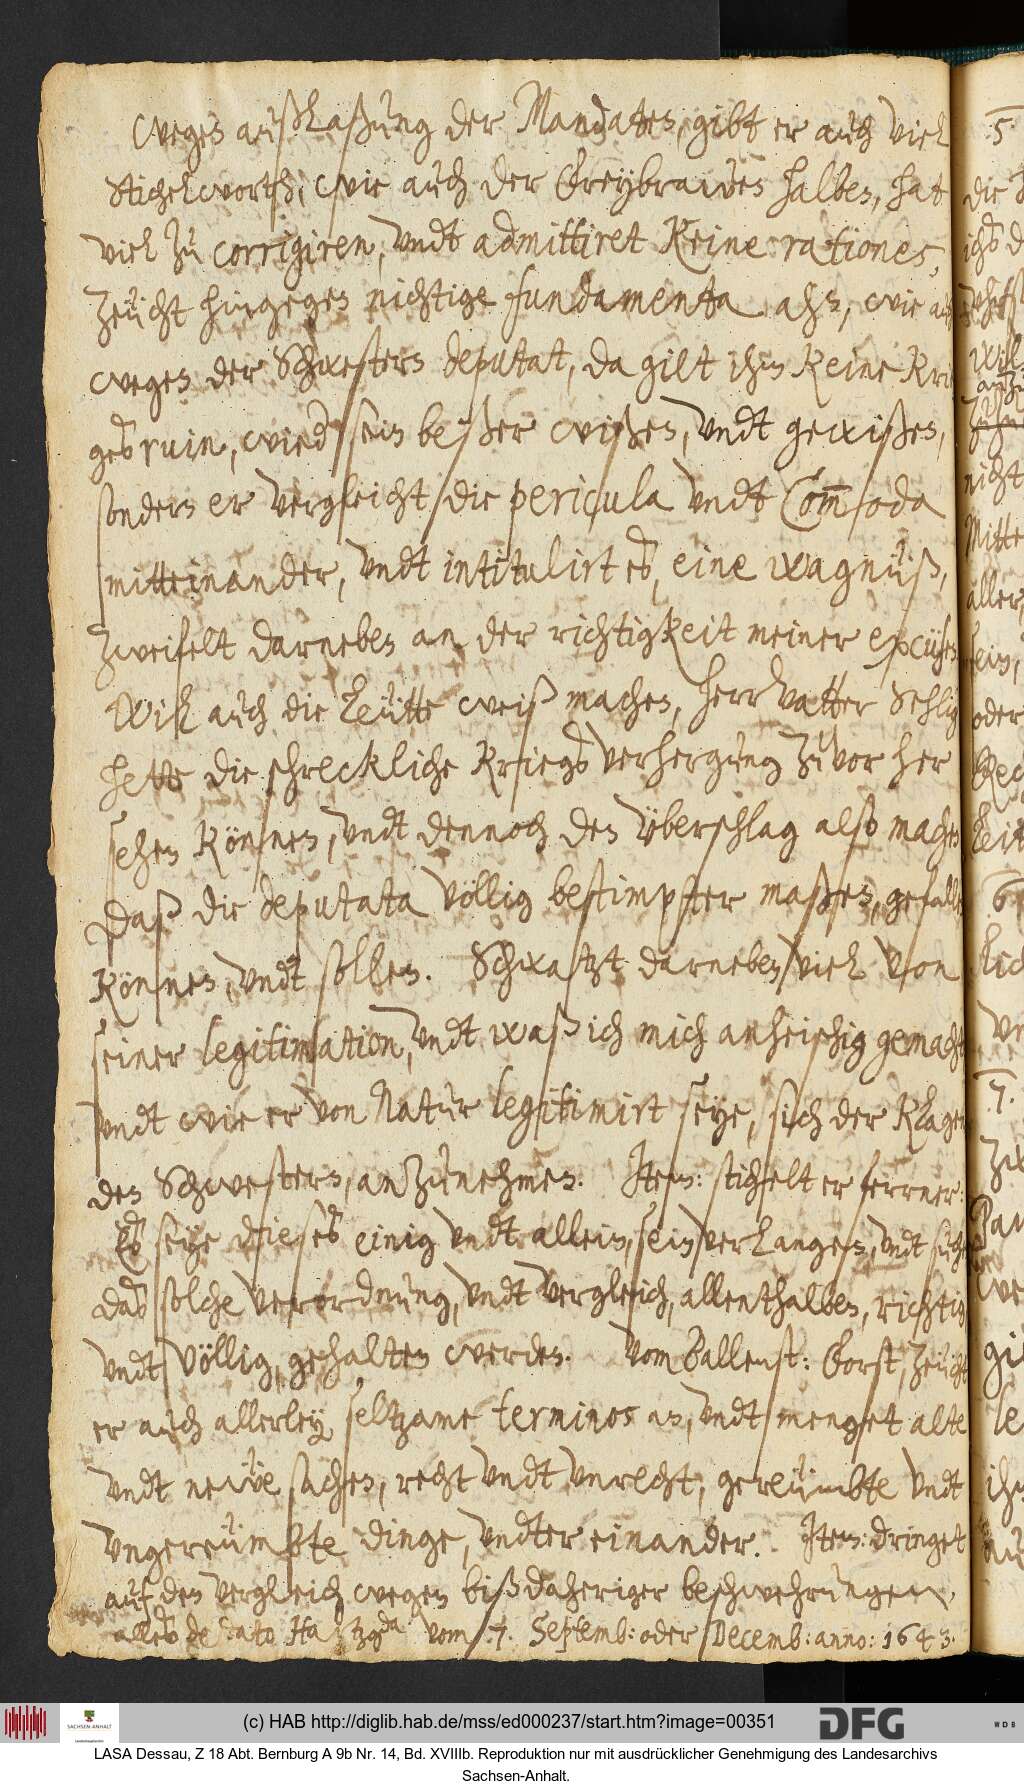 weges außlaßung der Mandaten, gibt er auch viel
Stichelworth, wie auch der Freybrawes halben, hat
viel zu corrigiren, undt admittiret keine rationes,
zeücht hingegen nichtige fundamenta ahn, wie auch
wegen der Schwestern deputat, da gilt ihm keine Krie
gsruin, wieder sein beßer wißen, undt gewißen,
sondern er vergleicht die pericula undt Com̄oda
miteinander, undt intitulirt es, eine wagnüß,
zweifelt darneben an der richtigkeit meiner excüsen
Will auch die Leütte weiß machen, herrvatter Sehlig
hette die schreckliche Kriegsverhergung zuvor her
sehen können, undt dennoch den überschlag also machen
Daß die deputata völlig bestimpter maßen, gefallen
können, undt sollen. Schwatzt darneben viel von
seiner legitimation, undt waß ich mich anheischig gemacht
undt wie er von Natur legitimirt seye, sich der Klagen
der Schwestern, anzunehmen. Item: stichelt er ferrner:
Es seye dieses einig undt allein, sein verlangen, undt suchen
das solche verordnung, undt vergleich, allenthalben, richtig
undt völlig, gehalten werden. Vom Ballenst: Forst, zeücht
er auch allerley seltzame terminos an, undt menget alte
undt newe sachen, recht undt unrecht, gereümbte undt
ungereümbte dinge, undter einander. Item: dringet
auf den vergleich wegen biß daheriger beschwehrungen,
alles de dato Hatzgda vom 7. Septemb: oder Decemb: anno: 1643.
5.
die
nicht
Mitte
aller
sein,
oder
6
7.
(c) HAB http://diglib.hab.de/mss/ed000237/start.htm?image=00351
SACHSEN-ANHALT
DFG
WDB
LASA Dessau, Z 18 Abt. Bernburg A 9b Nr. 14, Bd. XVIIIb. Reproduktion nur mit ausdrücklicher Genehmigung des Landesarchivs
Sachsen-Anhalt.